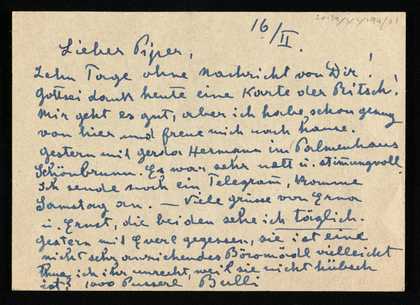 16/II.
Lieber Pijper,
Zehn Tage ohne Nachricht von Dir!!
Gottsei dank heute eine Karte der Ritsch!
Mir geht es gut, aber ich habe schon genug
von hier und freue mich nach hause.
Gestern mit Gerda Hermann im Palmenhaus
Schönbrunn. Es war sehr nett u. stimmungvoll.
Ich sende noch ein Telegram, komme
Samstag an. — Viele grüsse von Erna
u. Ernst, die beiden sehe ich täglich.
Gestern mit Everl gegessen, sie ist eine
nicht sehr anziehendes vielleicht
thue ich ihr unrecht, weil sie nicht hübsch
ist! 1000 Pusserl Bulli